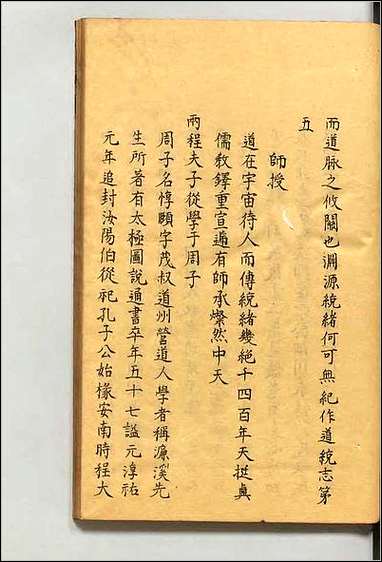 而道脉之攸關也淵源統緒何可無紀作道統志第
五
師授
道在宇宙待人而傳統緒幾絕千四百年天挺眞
儒教鐸重宣遞有師承燦然中天
兩程夫子從學于周子
周子名惇頤字茂叔道州營道人學者稱濂溪先
生所著有太極圖說通書卒年五十七謚元淳祐
元年追封汝陽伯從祀孔子公始椽安南時程大